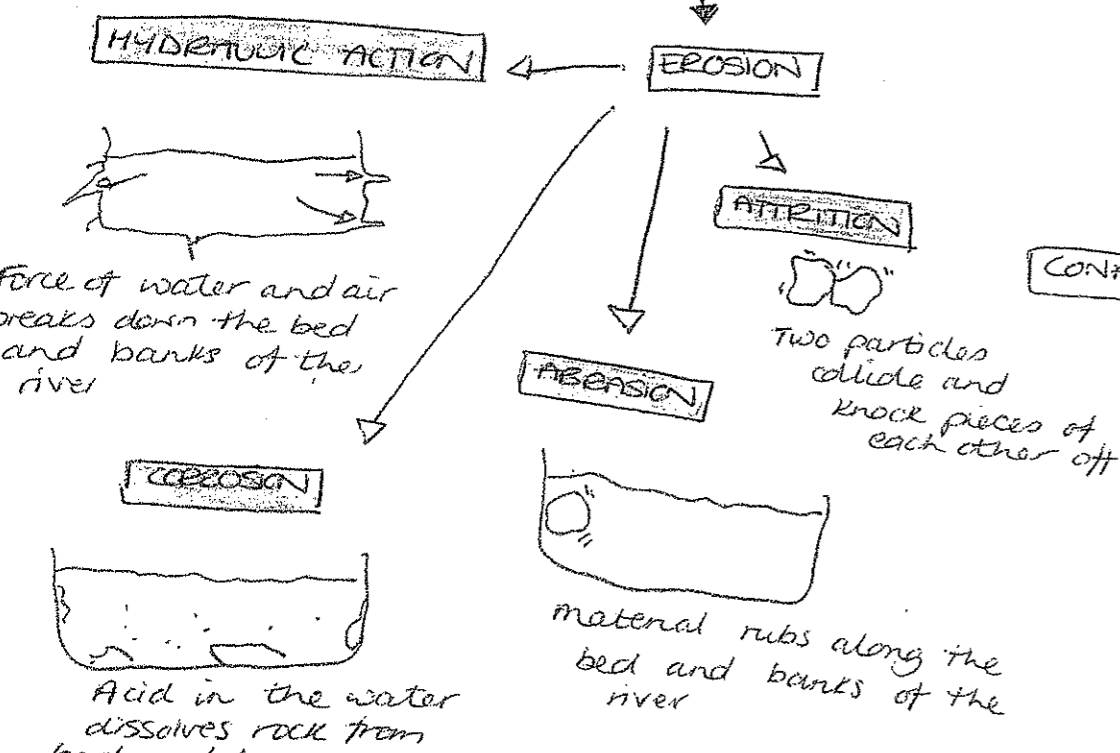 HYDRAULIC ACTION
EROSION
Force of water and air
breaks down the bed
and banks of the
river
ATTRITION
Two particles
collide and
knock pieces of
each other off
ABRASION
material rubs along the
bed and banks of the
river
CORROSION
Acid in the water
dissolves rock from